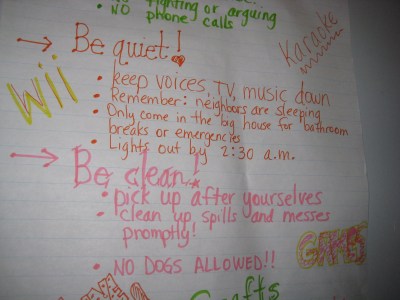 NO fighting or arguing
• NO phone calls
→ Be quiet!
Karaoke
Wii
• keep voices, TV, music down
• Remember: neighbors are sleeping
• Only come in the big house for bathroom
breaks or emergencies
• Lights out by 2:30 a.m.
→ Be clean!
• pick up after yourselves
• clean up spills and messes
promptly!
GAMES
• NO DOGS ALLOWED!!
Crafts